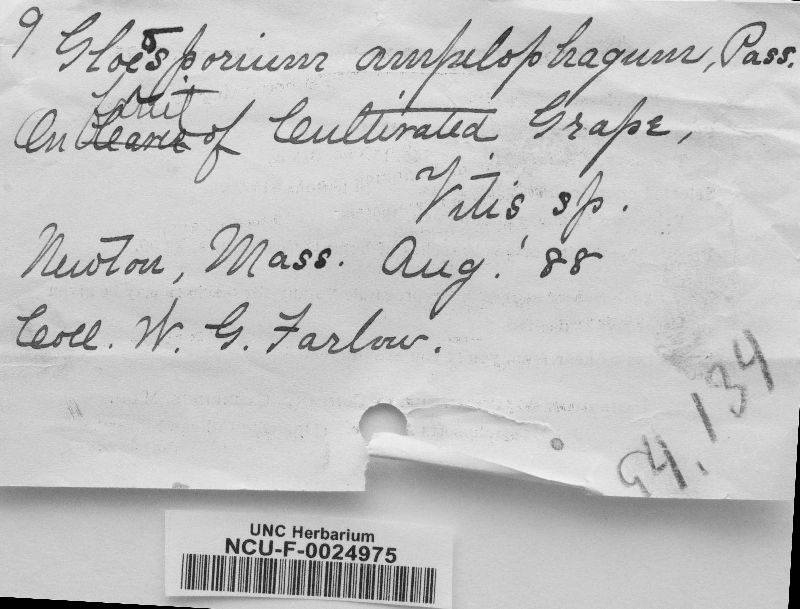 9 Gloeosporium ampelophagum, Pass.
fruit
On Leaves of Cultivated Grape,
Vitis sp.
Newton, Mass. Aug. '88
Coll. W. G. Farlow.
94.134
UNC Herbarium
NCU-F-0024975